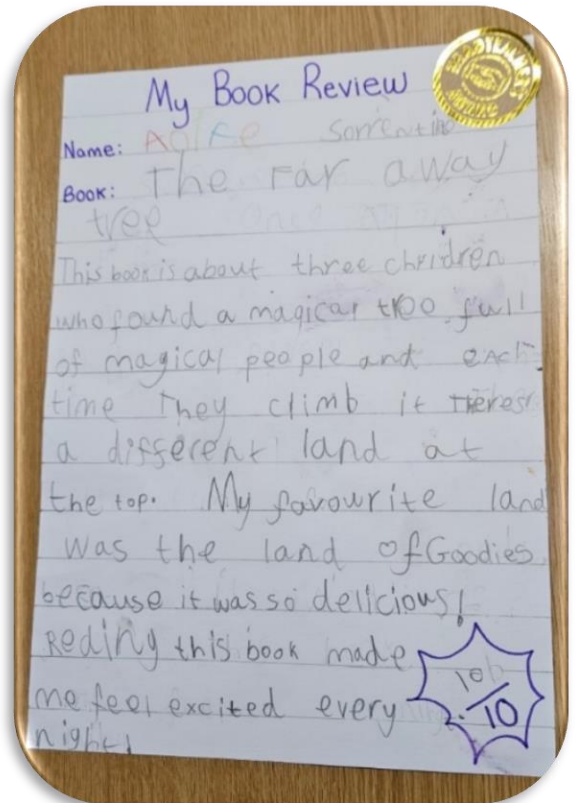 My Book Review
Name: Aoife Sorrentino
Book: The Far away
tree
This book is about three children
who found a magical tree full
of magical people and each
time They climb it theres
a different land at
the top. My favourite land
was the land of Goodies
because it was so delicious!
Reding this book made
me feel excited every
night!
10
10